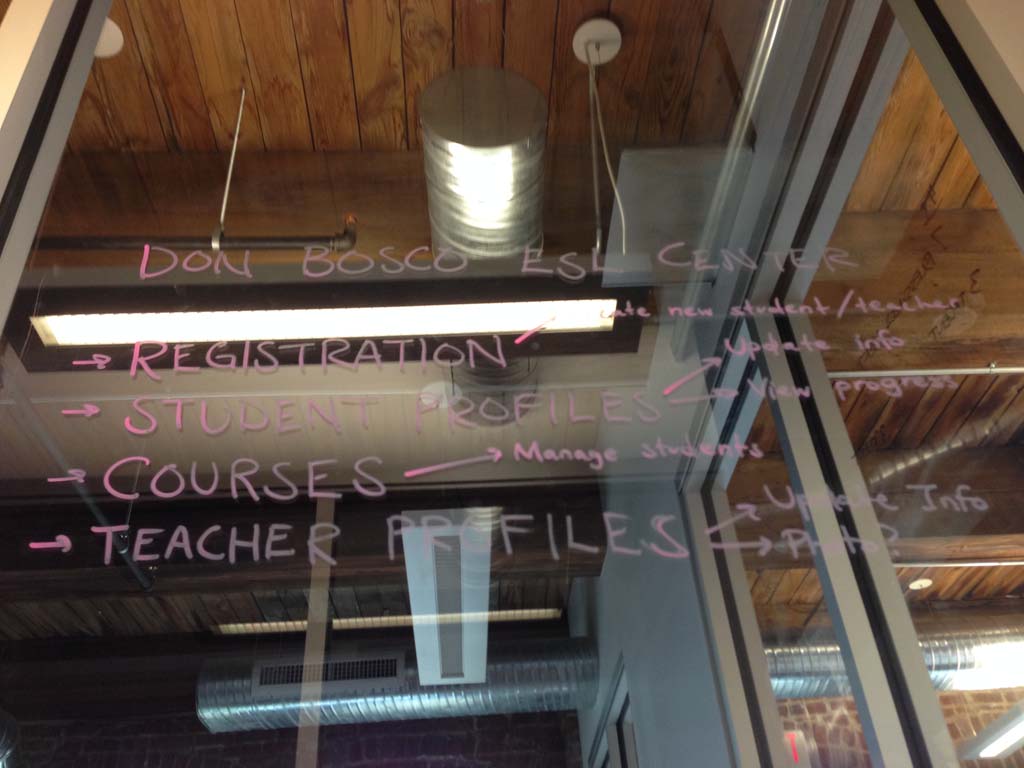 DON BOSCO ESL CENTER
→ REGISTRATION → Create new student/teacher
→ STUDENT PROFILES → Update info
→ View progress
→ COURSES → Manage students
→ TEACHER PROFILES → Update Info
→ Photo?